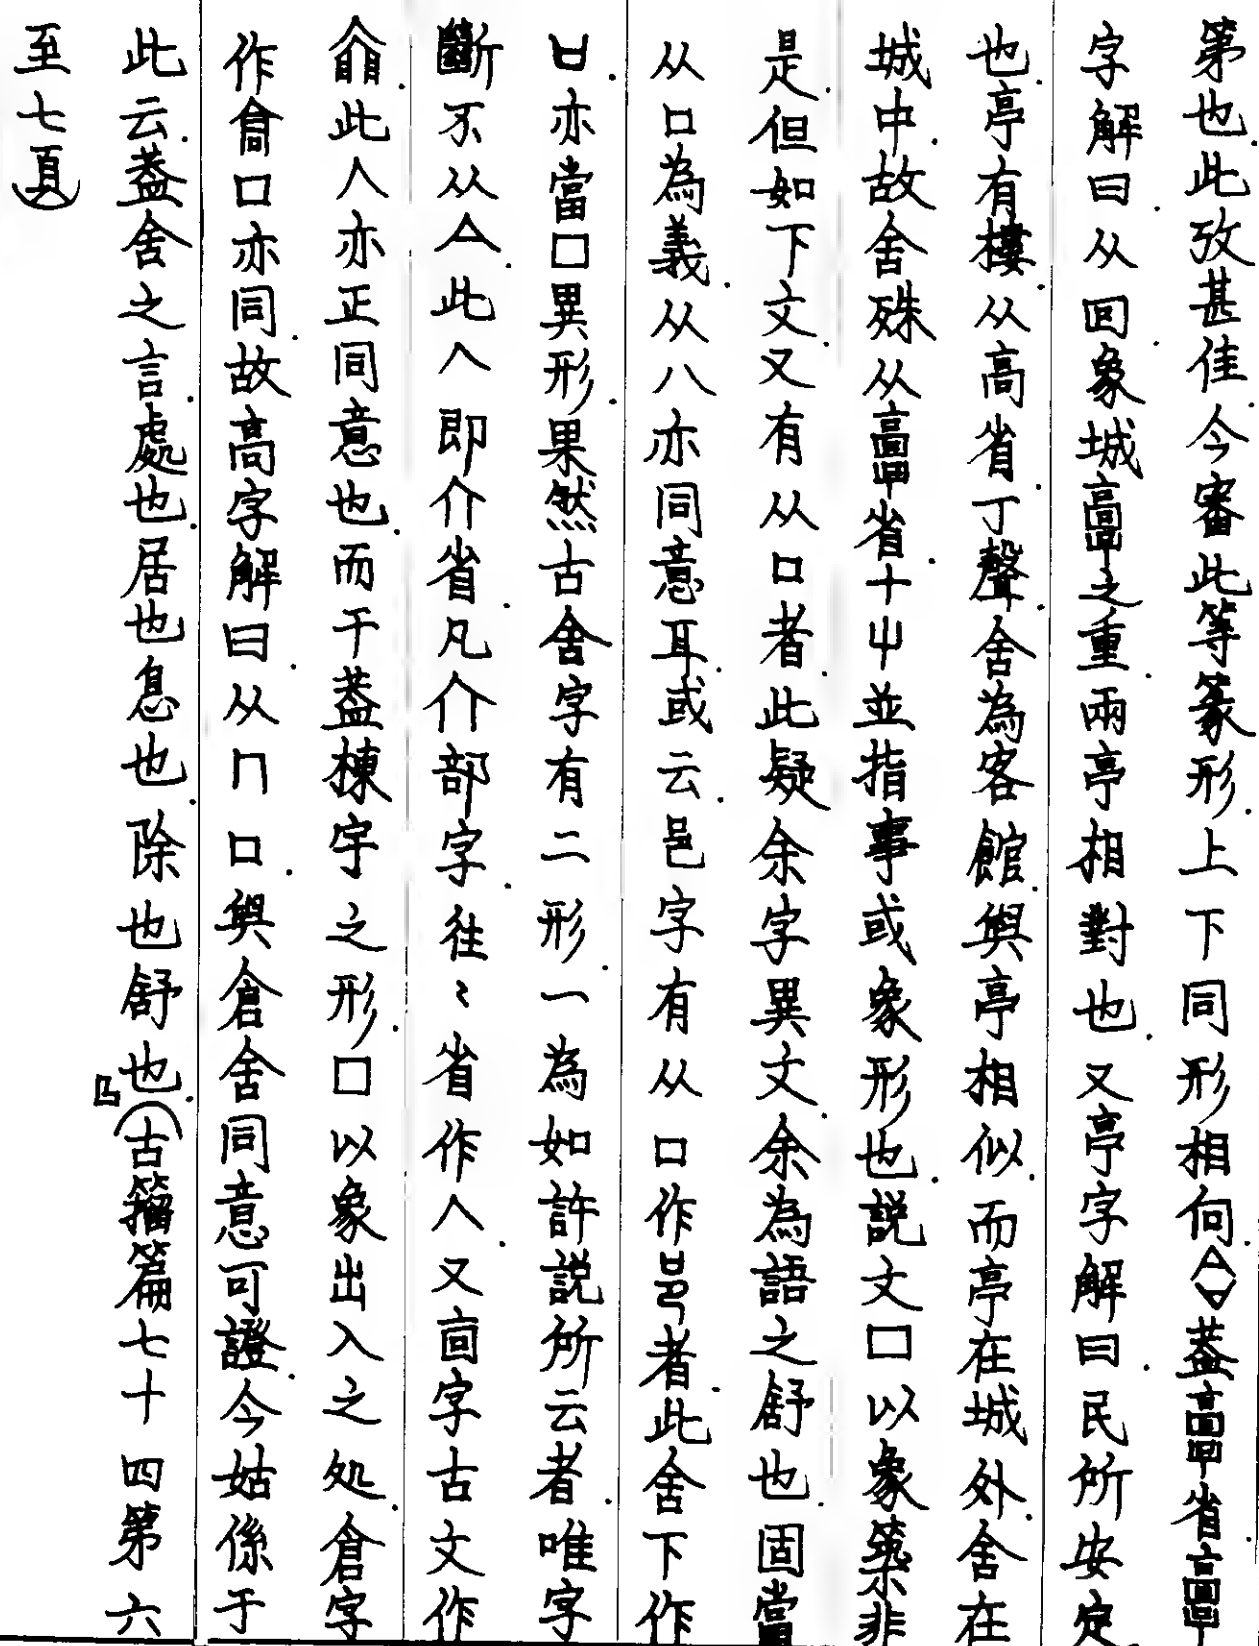 第也此攷甚佳今審此等篆形上下同形相向葢𩫖省𩫖
字解曰从回象城𩫖之重兩亭相對也又亭字解曰民所安定
也亭有樓从高省丁聲舍為客館與亭相似而亭在城外舍在
城中故舍殊从𩫖省十屮並指事或象形也説文囗以象築非
是但如下文又有从口者此疑余字異文余為語之舒也固當
从口為義从八亦同意耳或云邑字有从口作者此舍下作
亦當囗異形果然古舍字有二形一為如許説所云者唯字
斷不从亼此人即介省凡介部字往〻省作人又亩字古文作
此人亦正同意也而干葢棟宇之形囗以象出入之処倉字
作口亦同故高字解曰从冂口與倉舍同意可證今姑係于
此云葢舍之言處也居也息也除也舒也(古籀篇七十四第六
至七頁)